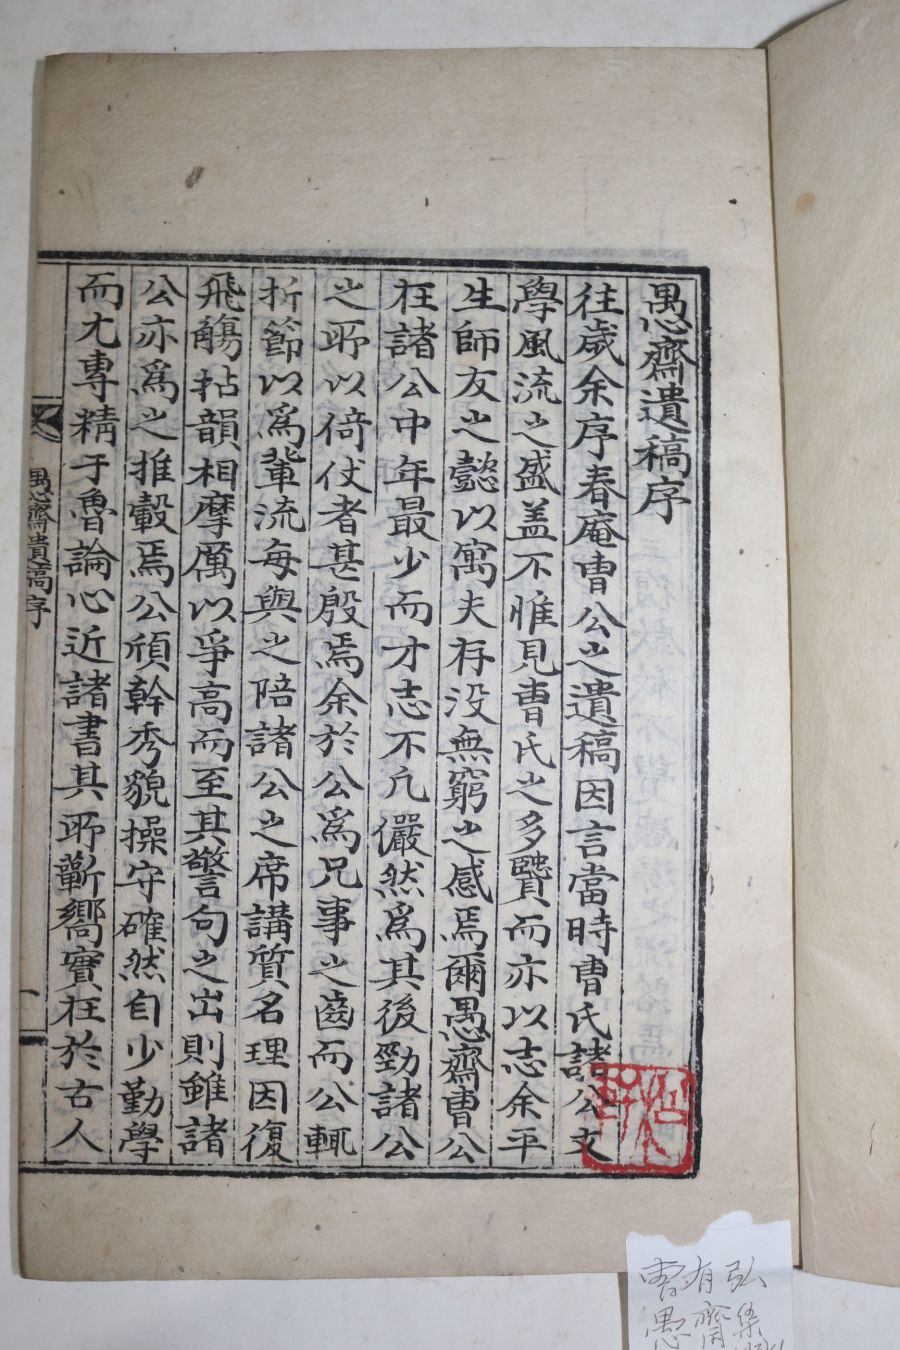 愚齋遺稿序
往歲余序春庵曺公之遺稿因言當時曺氏諸公文
學風流之盛盖不惟見曺氏之多賢而亦以志余平
生師友之懿以寓夫存没無窮之感焉爾愚齋曺公
在諸公中年最少而才志不凡儼然爲其後勁諸公
之所以倚仗者甚殷焉余於公爲兄事之齒而公輒
折節以爲輩流每與之陪諸公之席講質名理因復
飛觴拈韻相摩厲以爭高而至其警句之出則雖諸
公亦爲之推轂焉公頎幹秀貌操守確然自少勤學
而尤專精于魯論心近諸書其所蘄嚮實在於古人
愚齋遺稿序
一
曺有弘
愚齋集